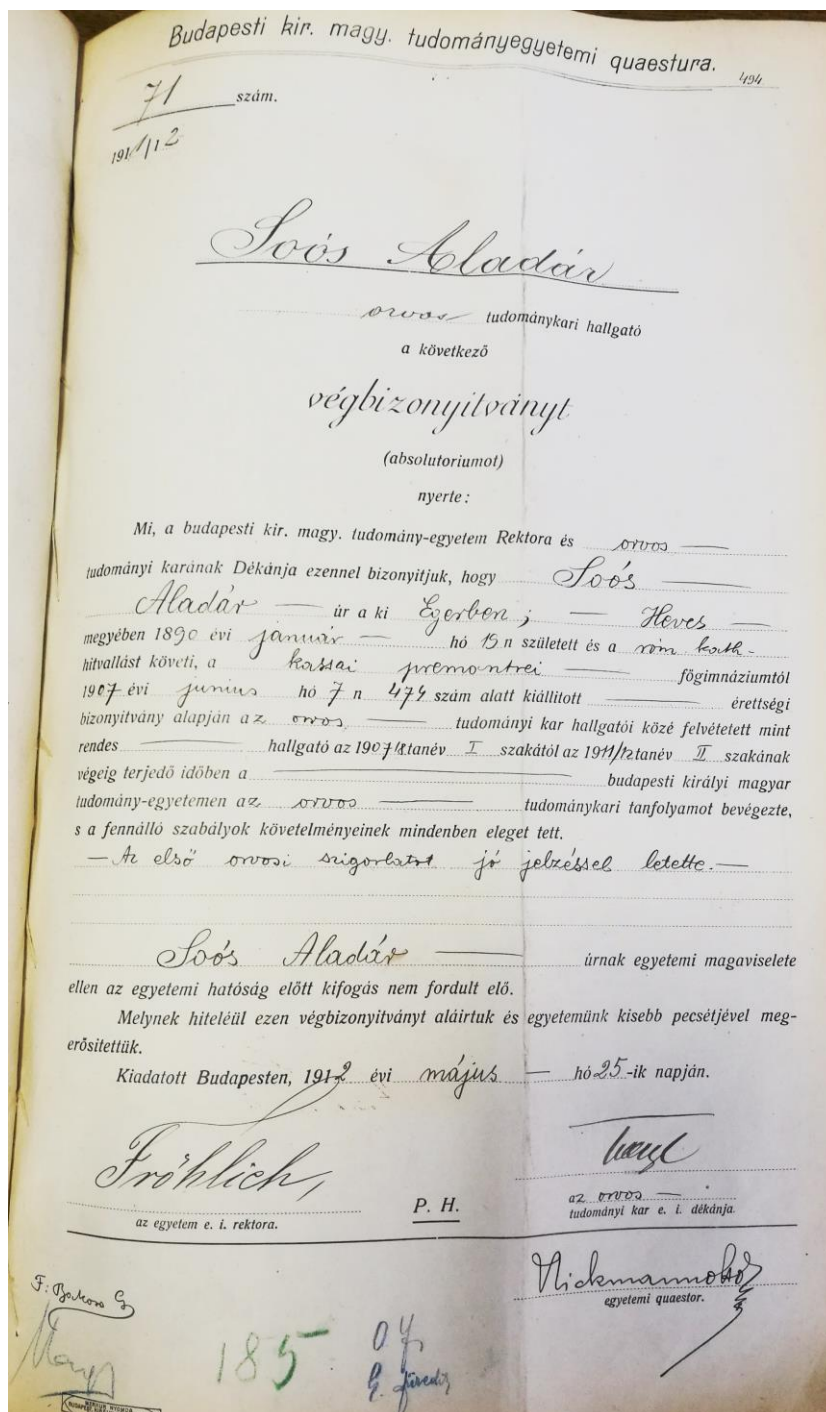 Budapesti kir. magy. tudományegyetemi quaestura.
494
71 szám.
1911/12
Soós Aladár
orvos tudománykari hallgató
a következő
végbizonyitványt
(absolutoriumot)
nyerte:
Mi, a budapesti kir. magy. tudomány-egyetem Rektora és orvos —
tudományi karának Dékánja ezennel bizonyitjuk, hogy Soós —
Aladár — úr a ki Egerben, — Heves —
megyében 1890 évi január — hó 15 n született és a róm kath-
hitvallást követi, a kassai premontrei — főgimnáziumtól
1907 évi junius hó 7 n 474 szám alatt kiállitott — érettségi
bizonyitvány alapján az orvos — tudományi kar hallgatói közé felvétetett mint
rendes — hallgató az 1907/8 tanév I szakától az 1911/12 tanév II szakának
végeig terjedő időben a — budapesti királyi magyar
tudomány-egyetemen az orvos — tudománykari tanfolyamot bevégezte,
s a fennálló szabályok követelményeinek mindenben eleget tett.
— Az első orvosi szigorlatot jó jelzéssel letette. —
Soós Aladár — úrnak egyetemi magaviselete
ellen az egyetemi hatóság előtt kifogás nem fordult elő.
Melynek hiteléül ezen végbizonyitványt aláirtuk és egyetemünk kisebb pecsétjével meg-
erősitettük.
Kiadatott Budapesten, 1912 évi május — hó 25-ik napján.
Fröhlich,
az egyetem e. i. rektora.
P. H.
az orvos —
tudományi kar e. i. dékánja.
egyetemi quaestor.
F: Bakos G
185